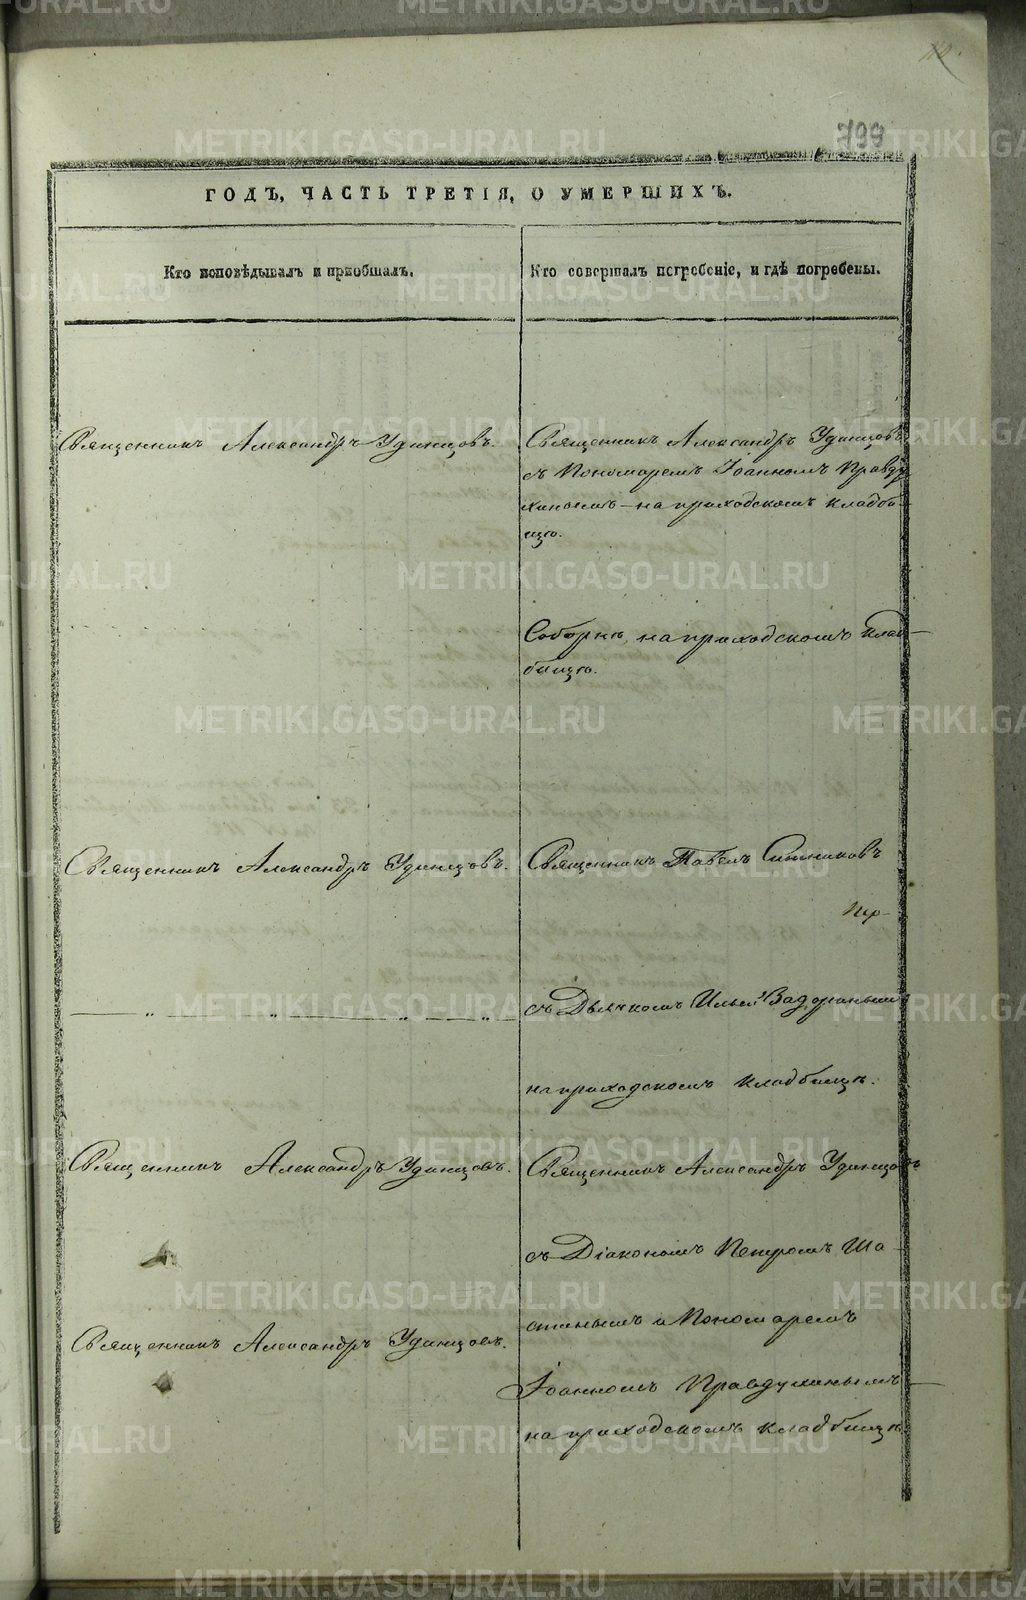 799
ГОДЪ, ЧАСТЬ ТРЕТІЯ, О УМЕРШИХЪ.
Кто исповѣдывалъ и пріобщалъ.
Кто совершалъ погребеніе, и гдѣ погребены.
Священникъ Александръ Удинцовъ.
Священникъ Александръ Удинцовъ
съ Пономаремъ Іоанномъ Правду
хинымъ – на приходскомъ кладби-
щѣ.
Соборнѣ, на приходскомъ клад-
бищѣ.
Священникъ Александръ Удинцовъ.
Священникъ Павелъ Ситниковъ
съ Дьячкомъ Ильей Задоринымъ
на приходскомъ кладбищѣ.
Священникъ Александръ Удинцовъ.
Священникъ Александръ Удинцовъ
съ Діакономъ Петромъ Ша-
Священникъ Александръ Удинцовъ.
стинымъ и Пономаремъ
Іоанномъ Правдухинымъ –
на приходскомъ кладбищѣ
METRIKI.GASO-URAL.RU